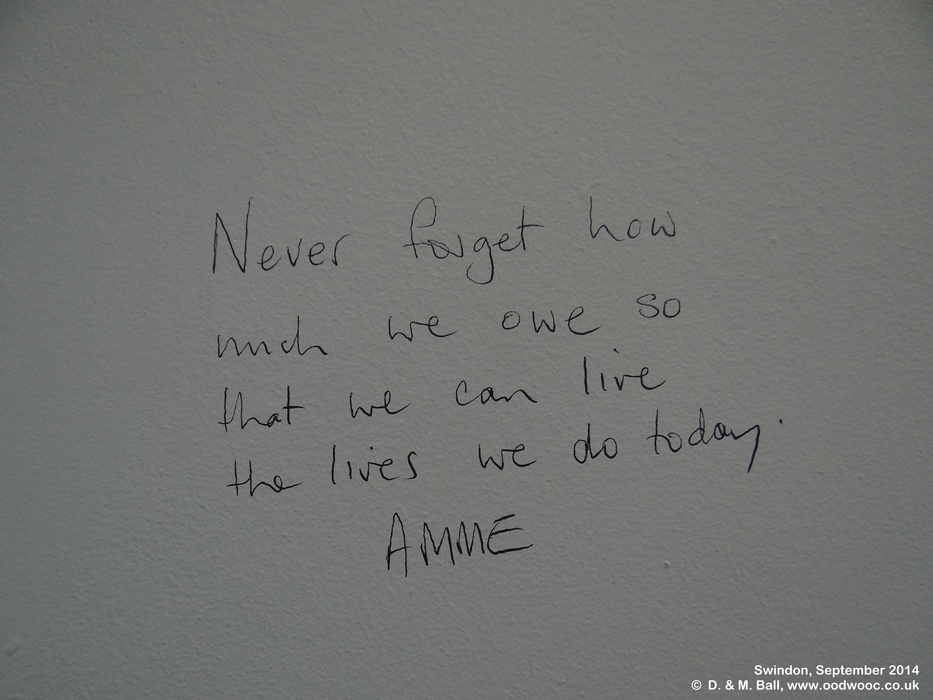 Never forget how
much we owe so
that we can live
the lives we do today.
AMME
Swindon, September 2014
© D. & M. Ball, www.oodwooc.co.uk